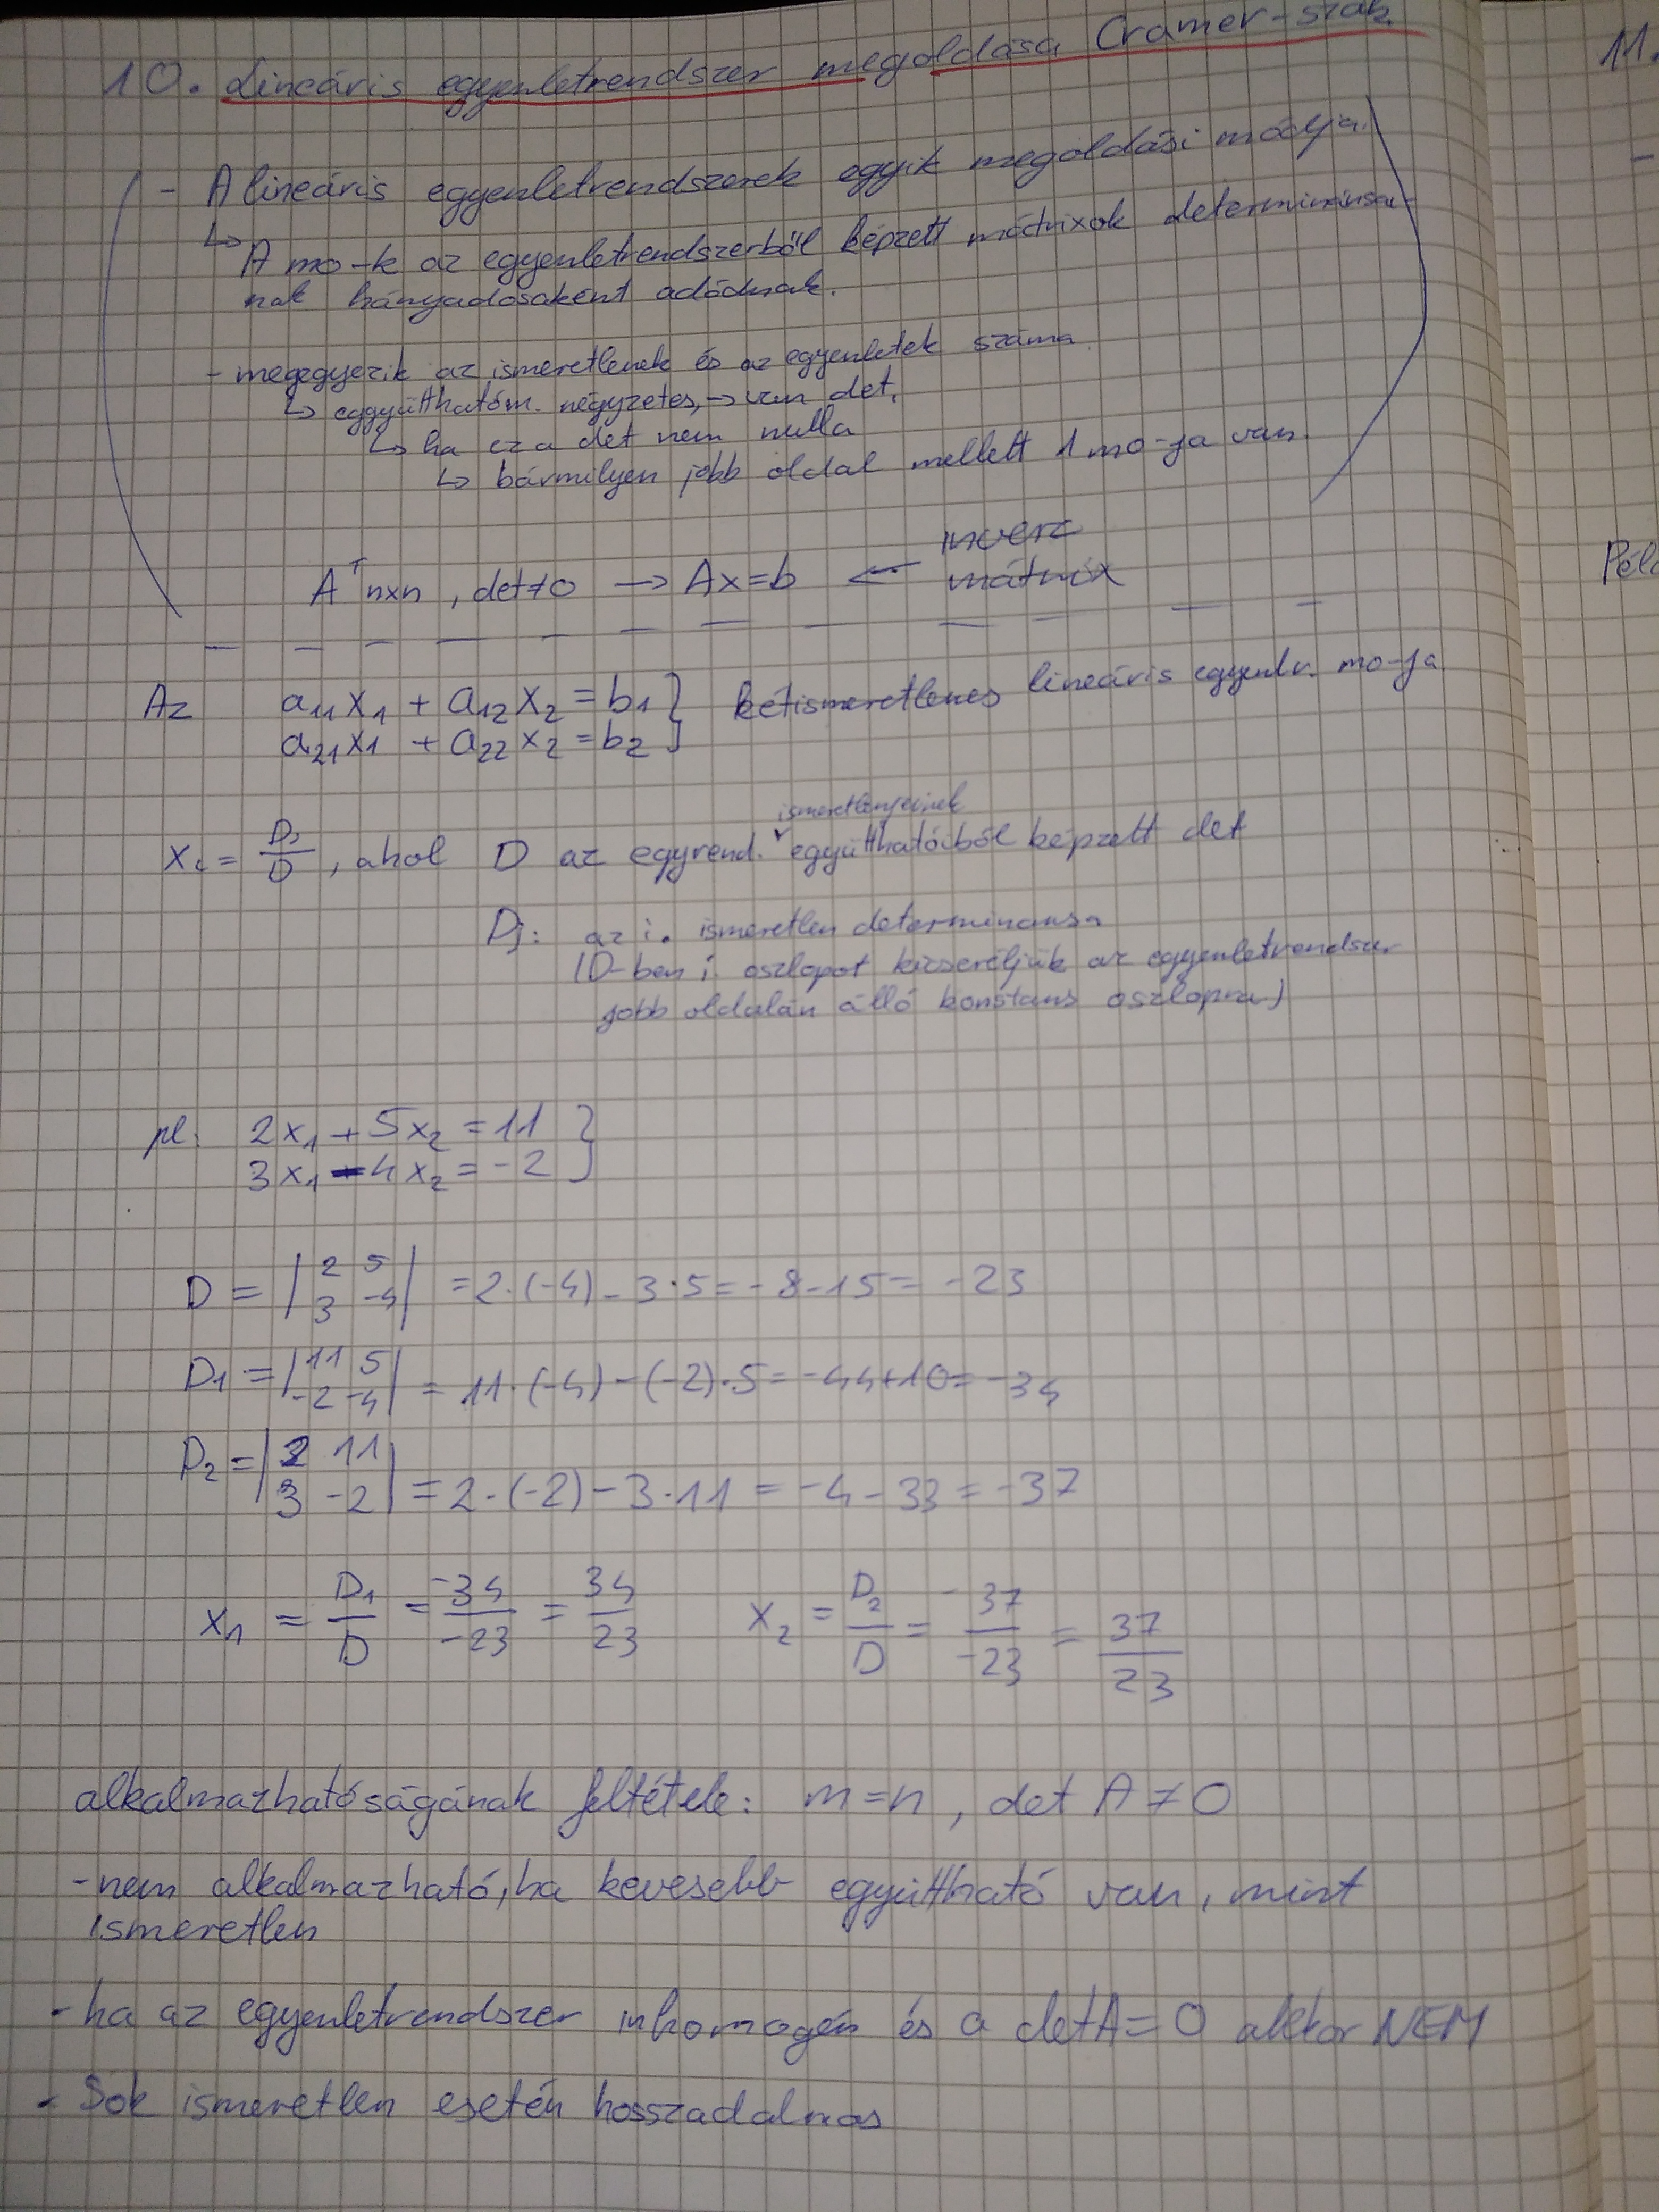 10. Lineáris egyenletrendszer megoldása Cramer-szab.
- A lineáris egyenletrendszerek egyik megoldási módja.
↳ A mo-k az egyenletrendszerből képzett mátrixok determinánsa-
nak hányadosaként adódnak.
- megegyezik az ismeretlenek és az egyenletek száma
↳ eggyütthatóm. négyzetes, → van det,
↳ ha ez a det nem nulla
↳ bármilyen jobb oldal mellett 1 mo-ja van.
inverz
A nxn, det≠0 → Ax=b ← mátrix
Az a₁₁x₁ + a₁₂x₂ = b₁ } kétismeretlenes lineáris egyenlr. mo-ja
a₂₁x₁ + a₂₂x₂ = b₂
ismeretlenjeinek
xᵢ = Dᵢ/D, ahol D az egyrend. együtthatóiból képzett det
Dj: az i. ismeretlen determinansa
(D-ben i. oszlopot kicseréljük az egyenletrendszer
jobb oldalán álló konstans oszlopra)
pl. 2x₁ + 5x₂ = 11 }
3x₁ - 4x₂ = -2
D = |2 5; 3 -4| = 2·(-4) - 3·5 = -8-15 = -23
D₁ = |11 5; -2 -4| = 11·(-4) - (-2)·5 = -44+10 = -34
D₂ = |2 11; 3 -2| = 2·(-2) - 3·11 = -4 - 33 = -37
x₁ = D₁/D = -34/-23 = 34/23 x₂ = D₂/D = -37/-23 = 37/23
alkalmazhatóságának feltétele: m=n, det A ≠ 0
- nem alkalmazható, ha kevesebb együttható van, mint
ismeretlen
- ha az egyenletrendszer inhomogén és a detA=0 akkor NEM
- Sok ismeretlen esetén hosszadalmas
11.
Péld